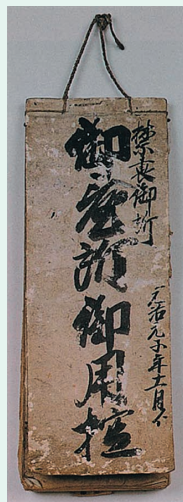 禁裏御所
御臺所御用控
元治元子年十一月ゟ